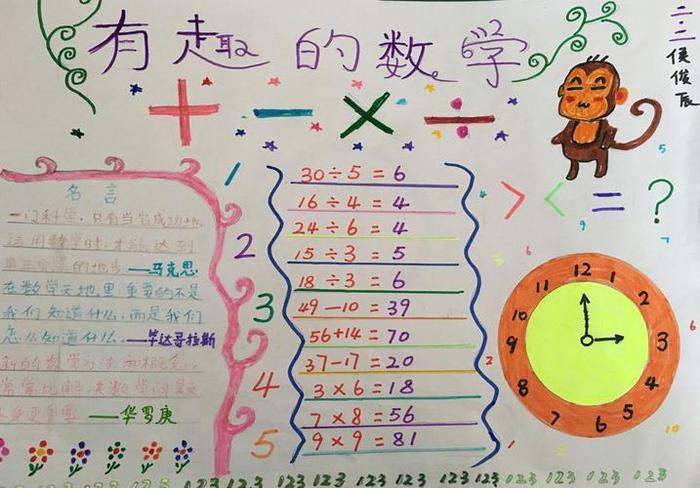 有趣的数学
二.二
侯俊辰
+ - × ÷
名言
一门科学,只有当它成功地
运用数学时,才能达到
真正完善的地步——马克思
在数学天地里重要的不是
我们知道什么,而是我们
怎么知道什么.——毕达哥拉斯
新的数学方法和概念,
常常比解决数学问题
重要——华罗庚
1
2
3
4
5
30÷5=6
16÷4=4
24÷6=4
15÷3=5
18÷3=6
49-10=39
56+14=70
37-17=20
3×6=18
7×8=56
9×9=81
> < = ?
12
1
2
3
4
5
6
7
8
9
10
11
123 123 123 123 123 123 123 123 123 123 123 123